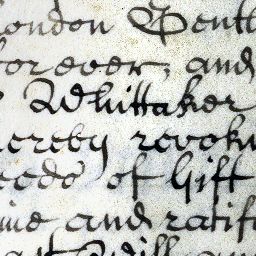 London Gentl
forever, and
Whittaker
hereby revoki
eeds of Gift
me and ratif
Will